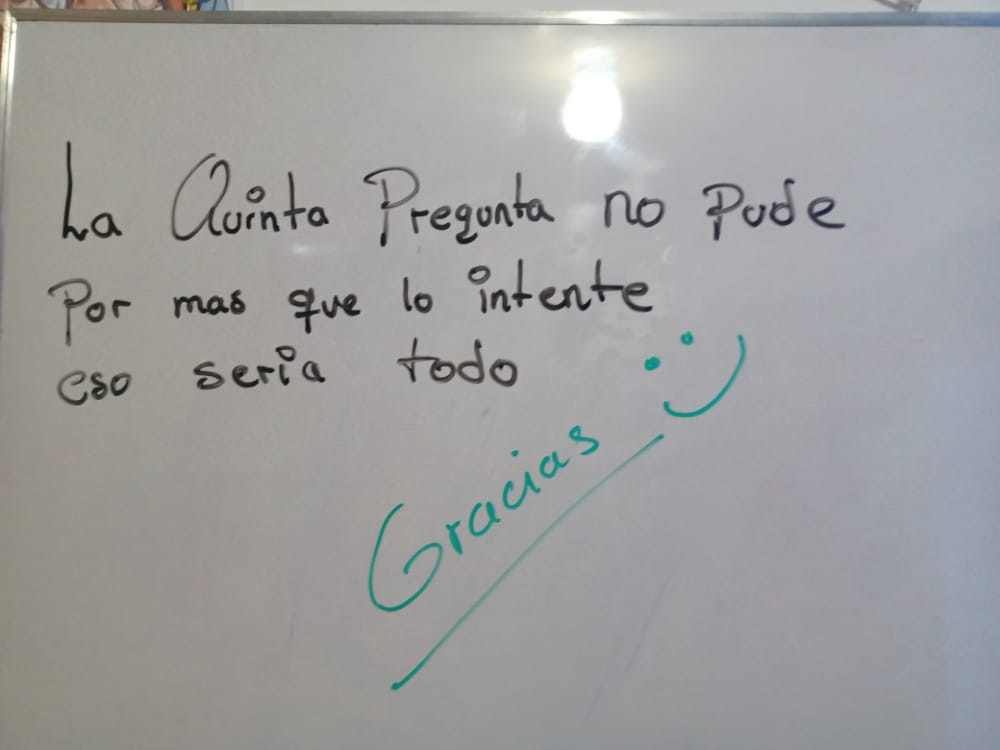 La Quinta Pregunta no Pude
Por mas que lo intente
eso seria todo
Gracias